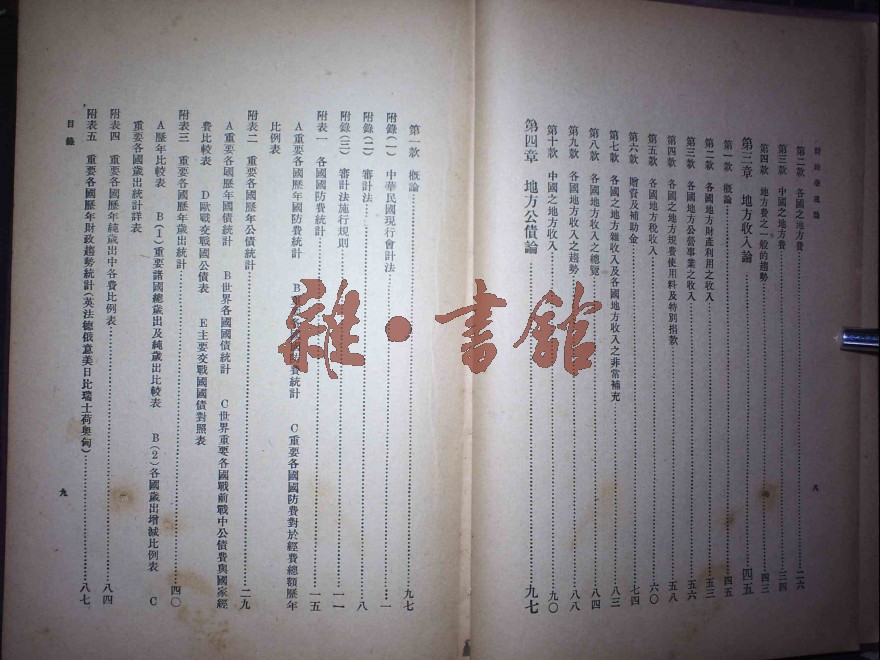 財政學通論
第二款 各國之地方費 二六
第三款 中國之地方費 三四
第四款 地方費之一般的趨勢 四三
第三章 地方收入論 四五
第一款 概論 四五
第二款 各國地方財產利用之收入 五三
第三款 各國地方公營事業之收入 五六
第四款 各國之地方規費使用料及特別捐款 五八
第五款 各國地方稅收入 六〇
第六款 贈資及補助金 七四
第七款 各國之地方雜收入及各國地方收入之非常補充 八三
第八款 各國地方收入之總覽 八四
第九款 各國地方收入之趨勢 八八
第十款 中國之地方收入 九〇
第四章 地方公債論 九七
八
第一款 概論 九七
附錄(一) 中華民國現行會計法 一
附錄(二) 審計法 八
附錄(三) 審計法施行規則 一一
附表一 各國國防費統計 一五
A重要各國歷年國防費統計 B 費統計 C重要各國國防費對於經費總額歷年
比例表
附表二 重要各國歷年公債統計 二九
A重要各國歷年國債統計 B世界各國國債統計 C世界重要各國戰前戰中公債費與國家經
費比較表 D歐戰交戰國公債表 E主要交戰國國債對照表
附表三 重要各國歷年歲出統計 四〇
A歷年比較表 B(1)重要諸國總歲出及純歲出比較表 B(2)各國歲出增減比例表 C
重要各國歲出統計詳表
附表四 重要各國歷年純歲出中各費比例表 八四
附表五 重要各國歷年財政趨勢統計(英法德俄意美日比瑞士荷奧匈) 八七
目錄
九
雜·書館